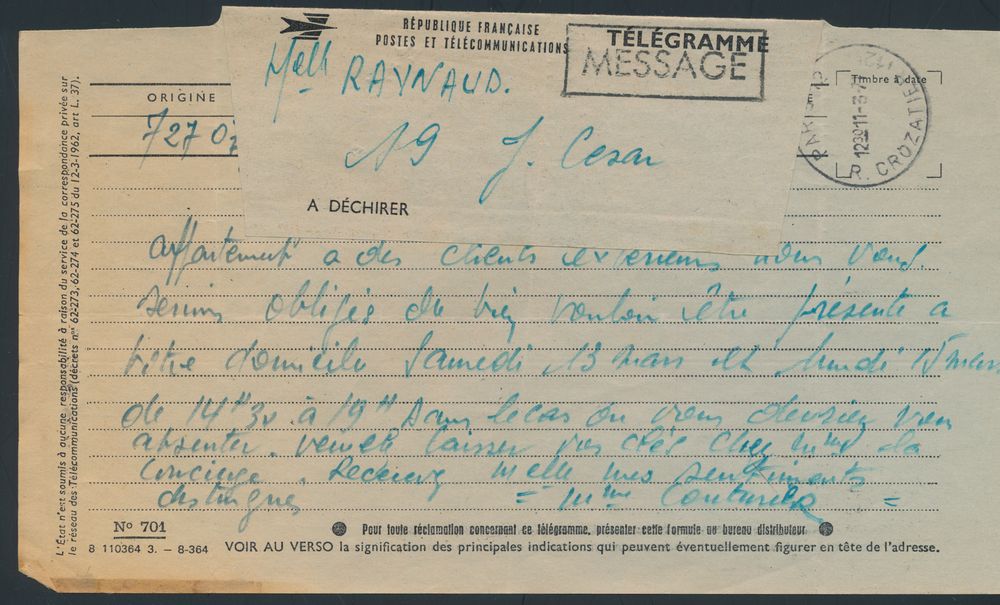 RÉPUBLIQUE FRANÇAISE
POSTES ET TÉLÉCOMMUNICATIONS
TÉLÉGRAMME
MESSAGE
Melle RAYNAUD.
19 J. Cesar
A DÉCHIRER
Timbre à date
PARIS
1230 11-3
R. CROZATIER
ORIGINE
727 02
appartement a des clients exterieurs nous vous
serions obligés de bien vouloir être présente a
votre domicile Samedi 13 mars et lundi 15 mars
de 14H30 à 19H Dans le cas ou vous devriez vous
absenter. veuillez laisser vos clés chez Mme la
Concierge. Recevez Melle mes sentiments
distingués = Mme Couturier =
Nº 701
8 110364 3. - 8-364
Pour toute réclamation concernant ce télégramme, présenter cette formule au bureau distributeur
VOIR AU VERSO la signification des principales indications qui peuvent éventuellement figurer en tête de l'adresse.
L'État n'est soumis à aucune responsabilité à raison du service de la correspondance privée sur
le réseau des Télécommunications (décrets nos 62-273, 62-274 et 62-275 du 12-3-1962, art L. 37).